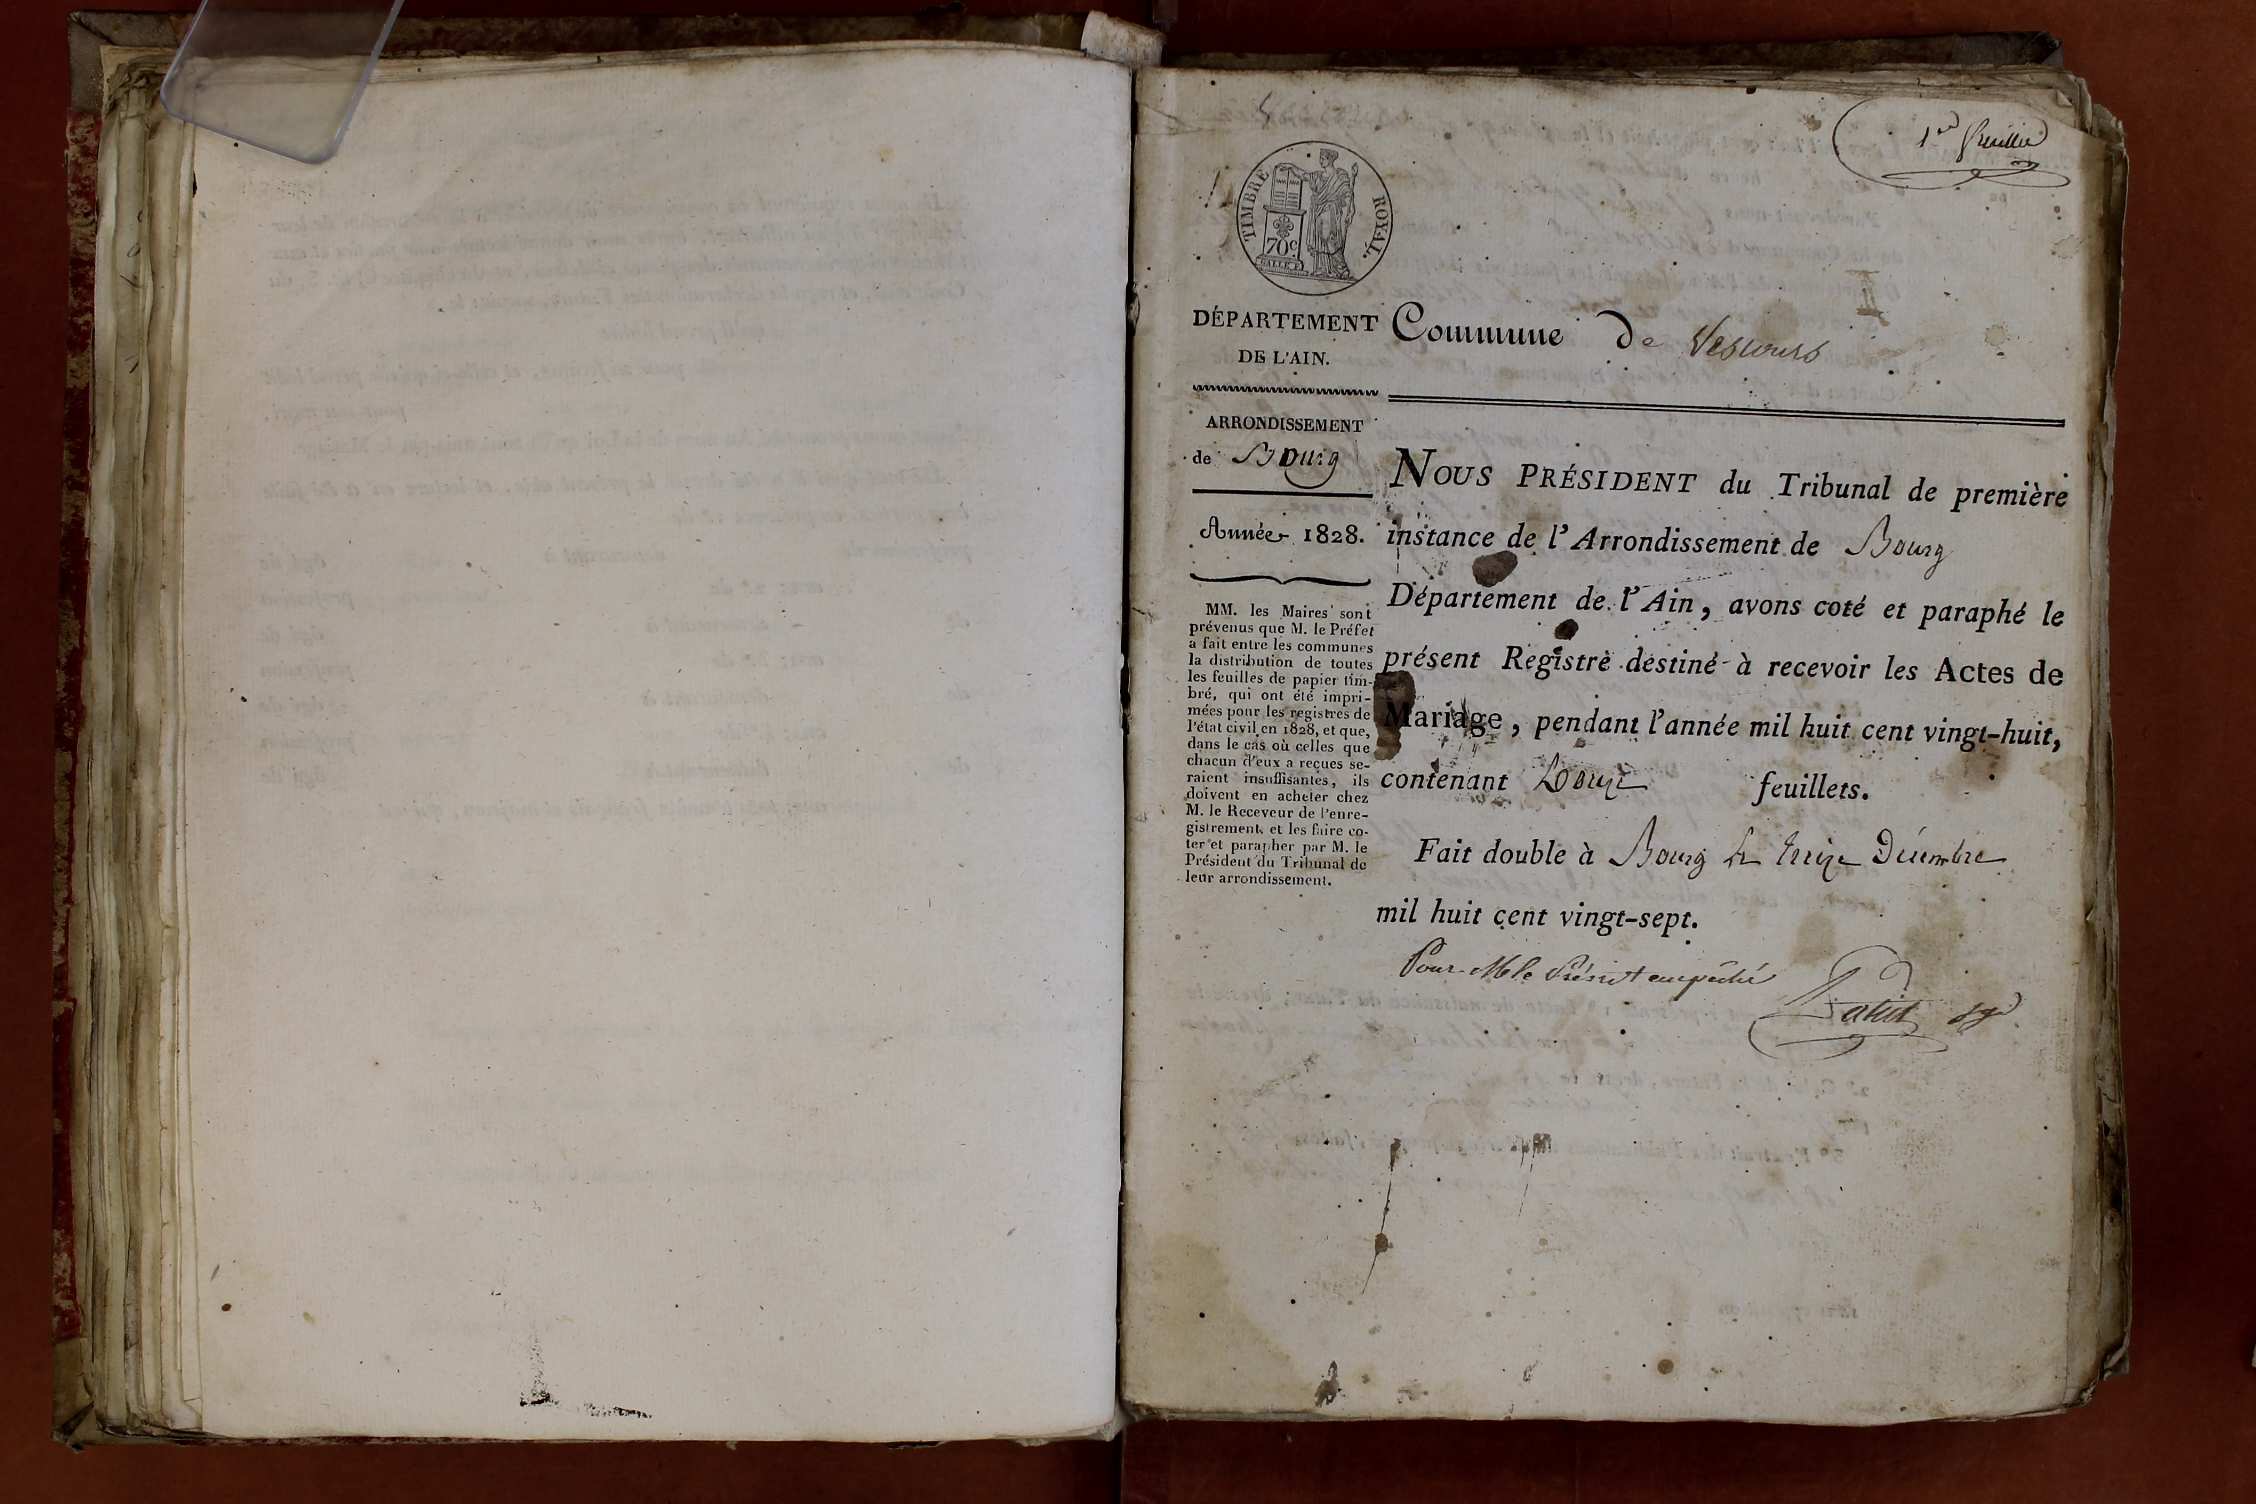 1er feuillet
TIMBRE ROYAL.
70c
DÉPARTEMENT
DE L'AIN.
Commune de Vescours
ARRONDISSEMENT
de Bourg
Année 1828.
MM. les Maires sont
prévenus que M. le Préfet
a fait entre les communes
la distribution de toutes
les feuilles de papier tim-
bré, qui ont été impri-
mées pour les registres de
l'état civil en 1828, et que,
dans le cas où celles que
chacun d'eux a reçues se-
raient insuffisantes, ils
doivent en acheter chez
M. le Receveur de l'enre-
gistrement, et les faire co-
ter et parapher par M. le
Président du Tribunal de
leur arrondissement.
NOUS PRÉSIDENT du Tribunal de première
instance de l'Arrondissement de Bourg
Département de l'Ain, avons coté et paraphé le
présent Registre destiné à recevoir les Actes de
Mariage, pendant l'année mil huit cent vingt-huit,
contenant Douze feuillets.
Fait double à Bourg le treize Décembre
mil huit cent vingt-sept.
Pour M le Présidt empêché